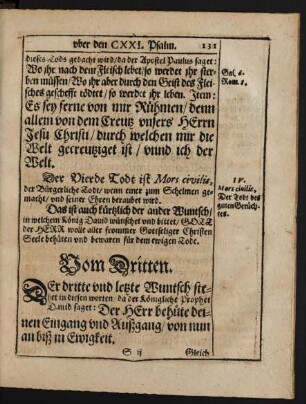 vber den CXXI. Psalm. 131
dieses Tods gedacht wird/da der Apostel Paulus saget:
Wo ihr nach dem Fleisch lebet/so werdet ihr ster-
ben müssen/Wo ihr aber durch den Geist des Flei-
sches geschefft tödtet/so werdet ihr leben. Item:
Es sey ferne von mir Rühmen/denn
allein von dem Creutz vnsers HErrn
Jesu Christi/durch welchen mir die
Welt gecreutziget ist/vnnd ich der
Welt.
Gal. 6.
Rom. 8.
Der Vierde Todt ist Mors civilis,
der Bürgerliche Todt/wenn einer zum Schelmen ge-
macht/vnd seiner Ehren beraubet wird.
IV.
Mors civilis,
Der Todt des
guten Gerüch-
tes.
Das ist auch kürtzlich der ander Wuntsch/
in welchem König David wünschet vnd bittet/GOTT
der HERR wollt aller frommer Gottseliger Christen
Seele behüten vnd bewaren für dem ewigen Tode.
Vom Dritten.
Der dritte vnd letzte Wuntsch ste-
het in diesen worten/da der Königliche Prophet
David saget: Der HErr behüte dei-
nen Eingang vnd Außgang/von nun
an biß in Ewigkeit.
S ij Gleich